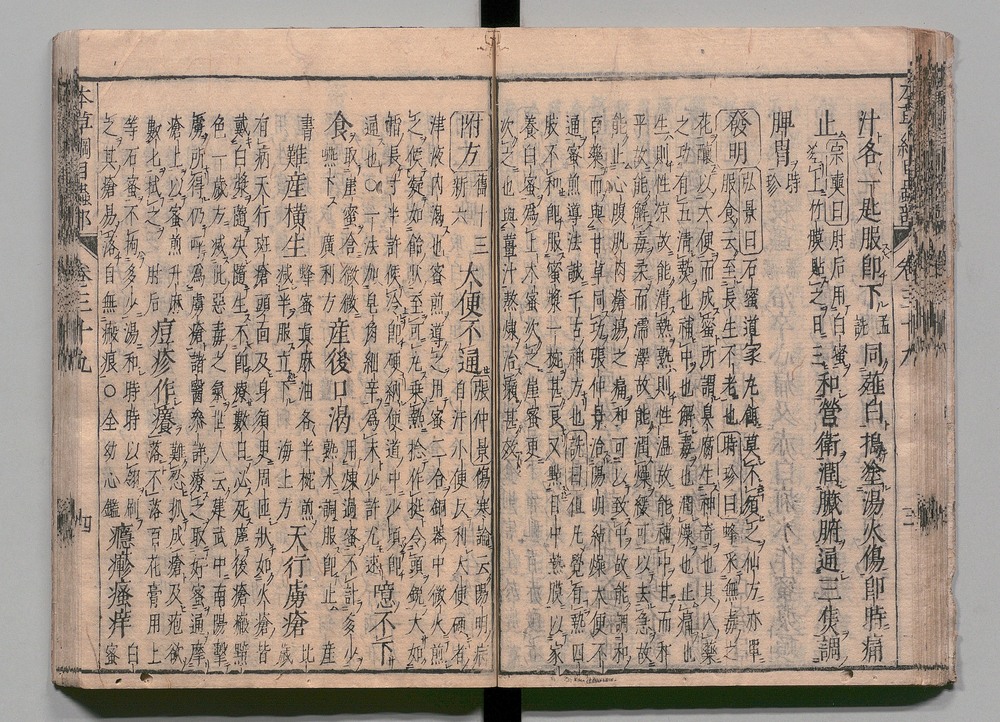 汁各一匙服即下孟詵同薤白搗塗湯火傷即時痛
止宗奭曰肘后用白蜜塗上竹膜貼之日三和營衛潤臟腑通三焦調
脾胃時珍
發明弘景曰石蜜道家丸餌莫不須之仙方亦單服食云至長生不老也時珍曰蜂采無毒之
花釀以大便而成蜜所謂臭腐生神奇也其入藥
之功有五清熱也補中也解毒也潤燥也止痛也
生則性涼故能清熱熟則性溫故能補中甘而和
平故能解毒柔而濡澤故能潤燥緩可以去急故
能止心腹肌肉瘡瘍之痛和可以致中故能調和
百藥而與甘草同功張仲景治陽明結燥大便不
通蜜煎導法誠千古神方也詵曰但凡覺有熱四
肢不和即服蜜漿一椀甚良又點目中熱膜以家
養白蜜為上木蜜次之崖蜜更
次之也與薑汁熬煉治癩甚效
附方舊十三新六大便不通張仲景傷寒論云陽明病自汗小便反利大便硬者
津液內竭也蜜煎導之用蜜二合銅器中微火煎
之候凝如飴狀至可丸乘熱捻作挺令頭銳大如
指長寸半許候冷即硬納便道中少頃即
通也○一法加皂肉細辛為末少許尤速噫不下
食取崖蜜含微微嚥下廣利方產後口渴用煉過蜜不計多少熟水調服即止產
書難產橫生蜂蜜真麻油各半椀煎減半服立下海上方天行虜瘡比歲
有病天行斑瘡頭面及身須臾周匝狀如火瘡皆
戴白漿隨決隨生不即療數日必死差後瘡瘢黯
色一歲方滅此惡毒之氣世人云建武中南陽擊
虜所得仍呼為虜瘡諸醫參詳療之取好蜜通摩
瘡上以蜜煎升麻數數拭之肘后痘疹作癢難忍抓成瘡及疱欲落不落百花膏用上
等石蜜不拘多少湯和時時以翎刷之其瘡易落自無瘢痕○全幼心鑑癮疹瘙癢白蜜
本草綱目蟲部 卷三十九 四